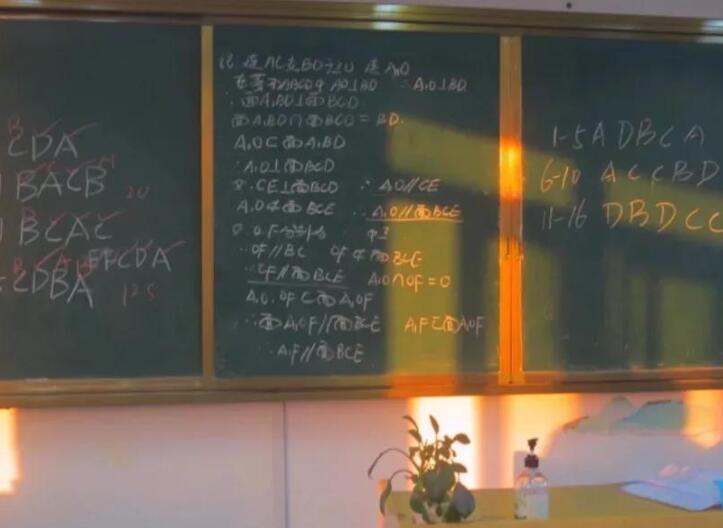 CDA
BACB 20
BCAC
EFCDA
CDBA 125
证:连AC交BD于O 连A₁O
A₁O⊥BD
∵面A₁BD⊥面BCD
面A₁BD∩面BCD=BD
A₁O⊂面A₁BD
∴A₁O⊥面BCD
又∵CE⊥面BCD ∴A₁O//CE
A₁O⊄面BCE ∴A₁O//面BCE
又O.F分别为 中点
∴OF//BC OF⊄面BCE
∴OF//面BCE A₁O∩OF=O
A₁O.OF⊂面A₁OF
∴面A₁OF//面BCE A₁F⊂面A₁OF
∴A₁F//面BCE
1-5 A DBCA
6-10 ACCBD
11-16 DBDCC